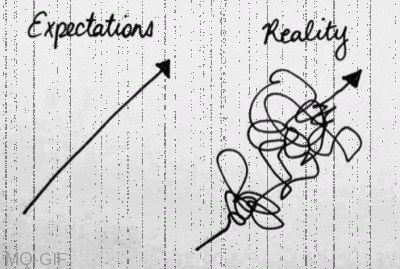 Expectations
Reality
MQ-GIF